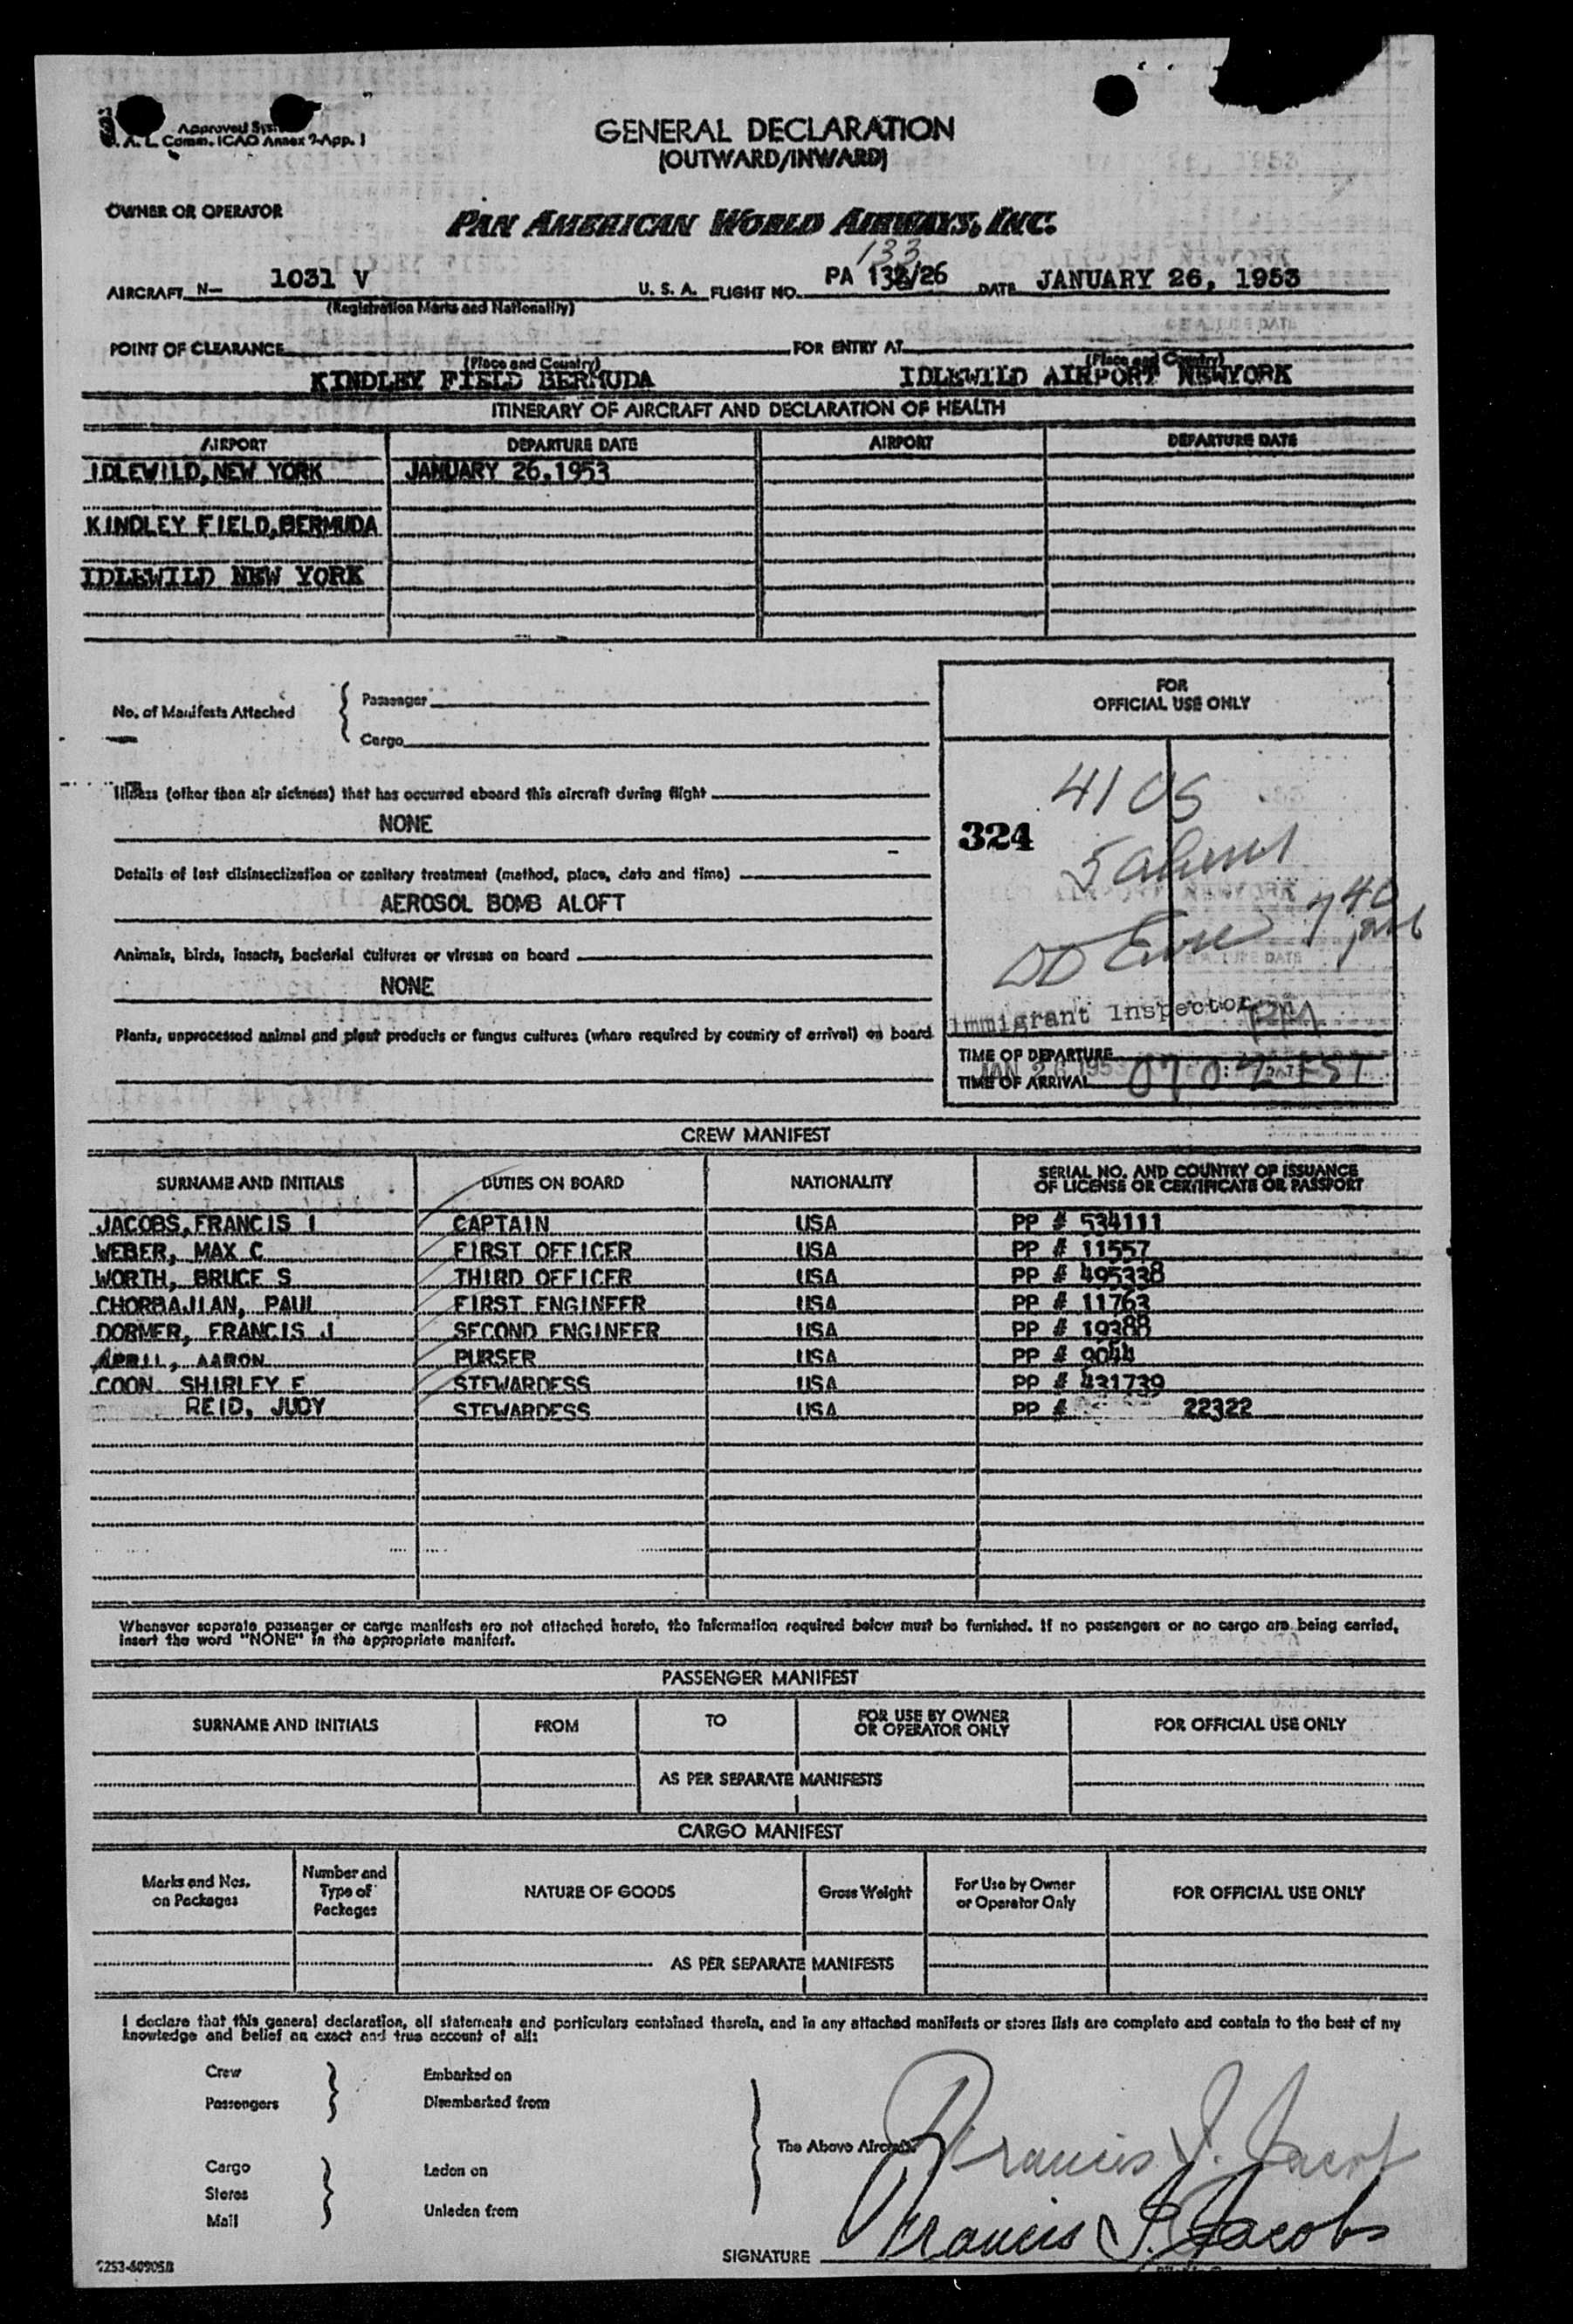 Approved
Comm. ICAO Annex 9-App. 1
GENERAL DECLARATION
(OUTWARD/INWARD)
OWNER OR OPERATOR
PAN AMERICAN WORLD AIRWAYS, INC.
133
AIRCRAFT N— 1031 V U. S. A. FLIGHT NO. PA 132/26 DATE JANUARY 26, 1953
(Registration Marks and Nationality)
POINT OF CLEARANCE FOR ENTRY AT
(Place and Country) (Place and Country)
KINDLEY FIELD BERMUDA IDLEWILD AIRPORT NEWYORK
ITINERARY OF AIRCRAFT AND DECLARATION OF HEALTH
AIRPORT DEPARTURE DATE AIRPORT DEPARTURE DATE
IDLEWILD, NEW YORK JANUARY 26,1953
KINDLEY FIELD,BERMUDA
IDLEWILD NEW YORK
No. of Manifests Attached { Passenger
Cargo
Illness (other than air sickness) that has occurred aboard this aircraft during flight
NONE
Details of last disinsectization or sanitary treatment (method, place, date and time)
AEROSOL BOMB ALOFT
Animals, birds, insects, bacterial cultures or viruses on board
NONE
Plants, unprocessed animal and plant products or fungus cultures (where required by country of arrival) on board
FOR
OFFICIAL USE ONLY
41 US
324
5 aliens
740
Immigrant Inspector
PM
TIME OF DEPARTURE
JAN 26 1953
TIME OF ARRIVAL 0702 EST
CREW MANIFEST
SURNAME AND INITIALS DUTIES ON BOARD NATIONALITY SERIAL NO. AND COUNTRY OF ISSUANCE
OF LICENSE OR CERTIFICATE OR PASSPORT
JACOBS,FRANCIS I CAPTAIN USA PP # 534111
WEBER, MAX C FIRST OFFICER USA PP # 11557
WORTH, BRUCE S THIRD OFFICER USA PP # 495338
CHORBAJIAN, PAUL FIRST ENGINEER USA PP # 11763
DORMER, FRANCIS J SECOND ENGINEER USA PP # 19388
APRIL, AARON PURSER USA PP # 9044
COON SHIRLEY E STEWARDESS USA PP # 431739
REID, JUDY STEWARDESS USA PP # 22322
Whenever separate passenger or cargo manifests are not attached hereto, the information required below must be furnished. If no passengers or no cargo are being carried,
insert the word "NONE" in the appropriate manifest.
PASSENGER MANIFEST
SURNAME AND INITIALS FROM TO FOR USE BY OWNER
OR OPERATOR ONLY FOR OFFICIAL USE ONLY
AS PER SEPARATE MANIFESTS
CARGO MANIFEST
Marks and Nos.
on Packages Number and
Type of
Packages NATURE OF GOODS Gross Weight For Use by Owner
or Operator Only FOR OFFICIAL USE ONLY
AS PER SEPARATE MANIFESTS
I declare that this general declaration, all statements and particulars contained therein, and in any attached manifests or stores lists are complete and contain to the best of my
knowledge and belief an exact and true account of all:
Crew Embarked on
Passengers Disembarked from
The Above Aircraft
Francis I. Jacobs
Cargo Laden on
Stores
Mail Unladen from
SIGNATURE Francis I. Jacobs